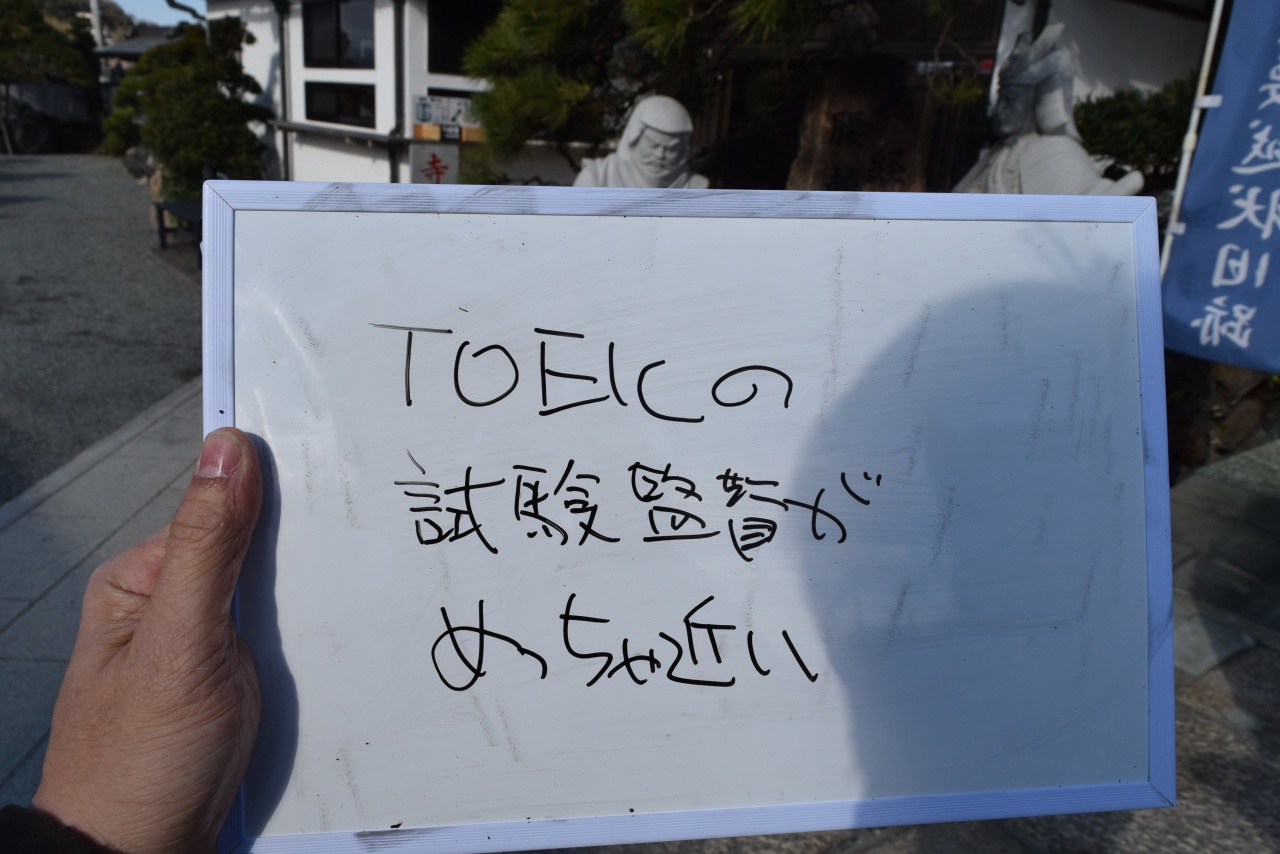 寺
越状旧跡
TOEICの
試験監督が
めっちゃ近い